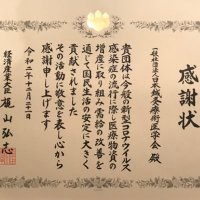 感謝状
一般社団法人日本鍼灸療術医学会 殿
貴団体は今般の新型コロナウイルス
感染症の流行に際し医療物資の
増産に取り組み需給の改善を
通して国民生活の安定に大きく
貢献されました
その活動に敬意を表し心から
感謝申し上げます
令和二年十二月二十一日
経済産業大臣 梶山弘志